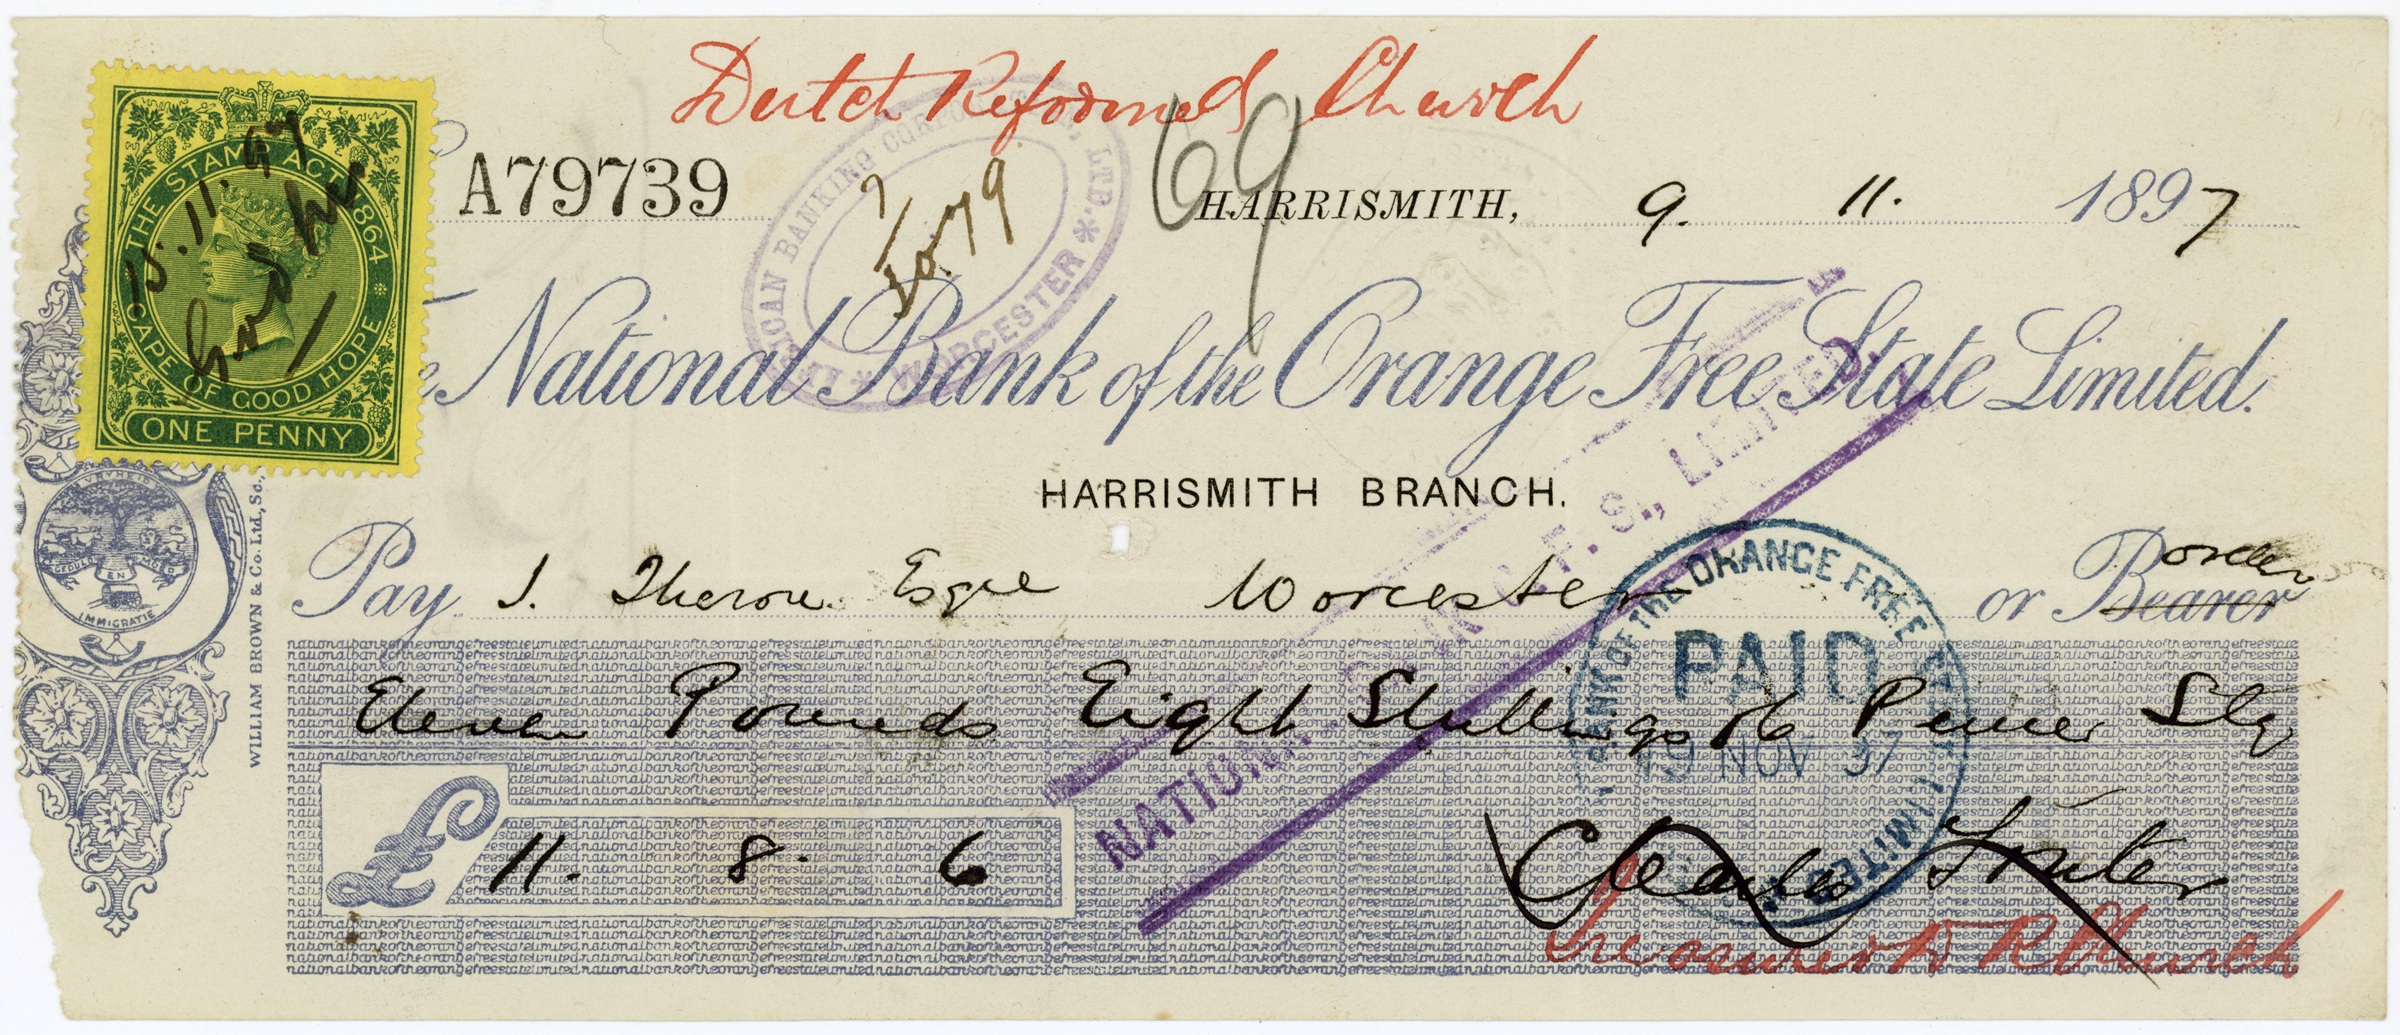 Dutch Reformed Church
A79739
69
HARRISMITH, 9. 11. 1897
THE STAMP ACT 1864
CAPE OF GOOD HOPE
ONE PENNY
15.11.97
AFRICAN BANKING CORPORATION, LTD.
WORCESTER
National Bank of the Orange Free State Limited.
HARRISMITH BRANCH.
Pay J. Theron Esqre Worcester or Bearer order
Eleven Pounds Eight Shillings & 6 Pence Stg
£ 11. 8. 6
VRYHEID
GEDULD EN MOED
IMMIGRATIE
WILLIAM BROWN & Co. Ltd., Sc.,
NATIONAL BANK O. F. S., LIMITED,
BANK OF THE ORANGE FREE STATE LIMITED
PAID
NOV 97
Charles
Treasurer D R Church